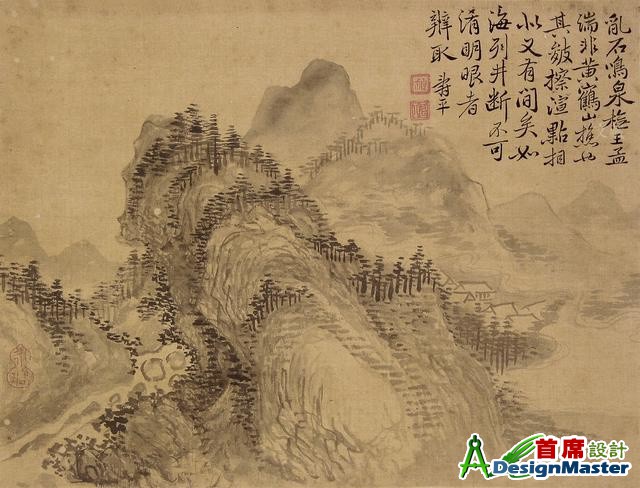 亂石鳴泉橅王孟
端非黃鶴山樵也
其皴擦渲點相
似又有間矣如
海列井斷不可
淆明眼者
辨取 壽平
首席設計
DesignMaster